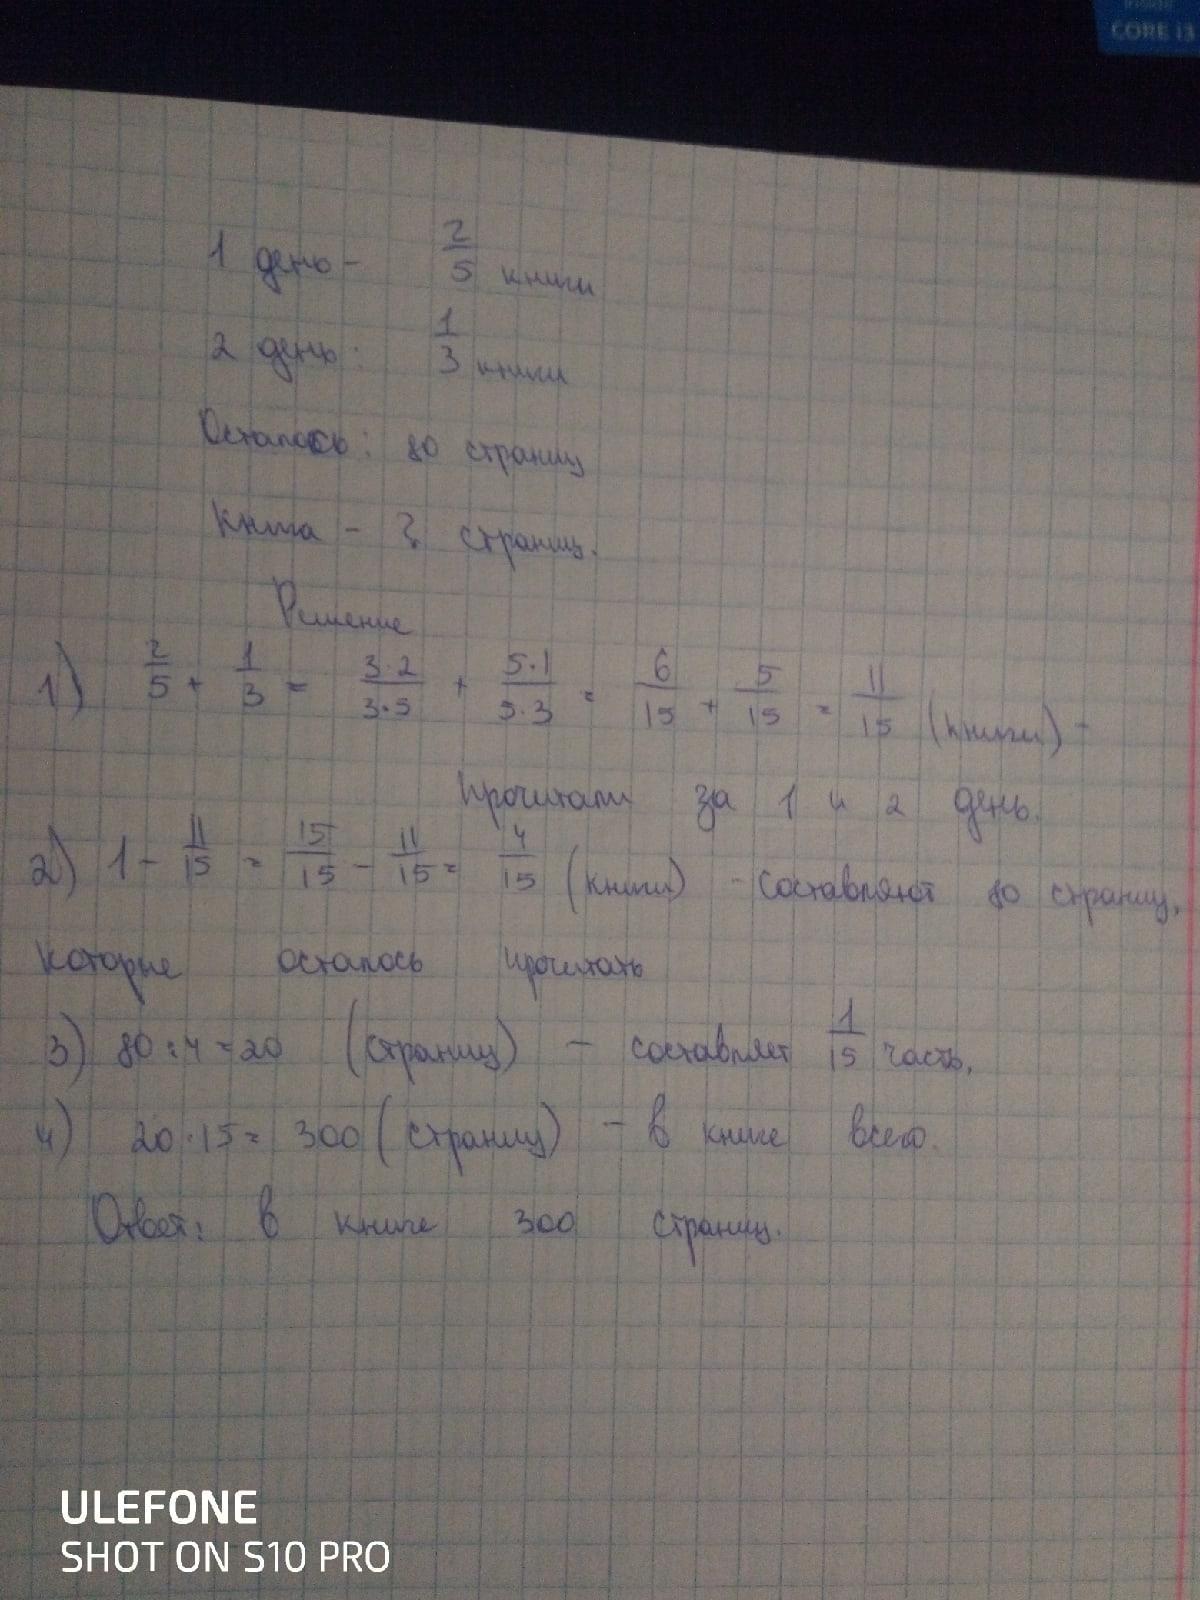 inside
CORE i3
1 день - 2/5 книги
2 день: 1/3 книги
Осталось: 80 страниц
Книга - ? страниц.
Решение
1) 2/5 + 1/3 = 3·2/3·5 + 5·1/5·3 = 6/15 + 5/15 = 11/15 (книги) -
прочитали за 1 и 2 день.
2) 1 - 11/15 = 15/15 - 11/15 = 4/15 (книги) - составляют 80 страниц,
которые осталось прочитать
3) 80 : 4 = 20 (страниц) - составляет 1/15 часть.
4) 20 · 15 = 300 (страниц) - в книге всего.
Ответ: в книге 300 страниц.
ULEFONE
SHOT ON S10 PRO